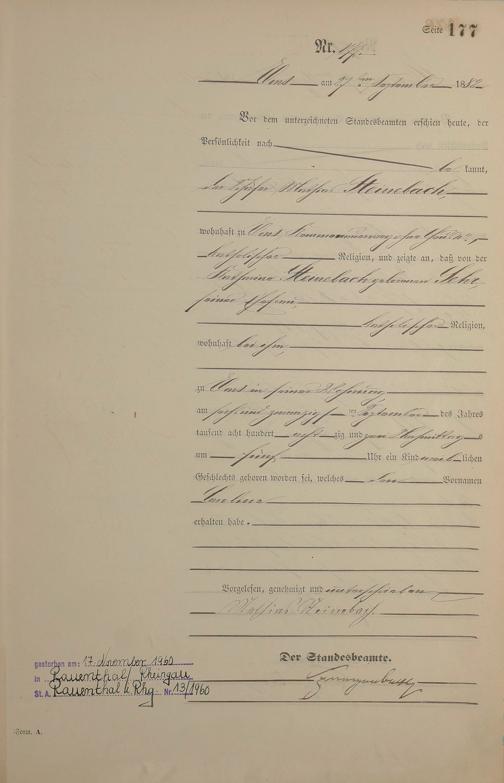 Seite 177
Nr. 177.
Ems am 27 ten September 1882
Vor dem unterzeichneten Standesbeamten erschien heute, der
Persönlichkeit nach
be kannt,
der Mathias Steinebach,
wohnhaft zu Ems
katholischer Religion, und zeigte an, daß von der
Steinebach gebornen
seiner Ehefrau
katholischer Religion,
wohnhaft bei ihm,
zu Ems in seiner Wohnung
am sechs und zwanzigsten September des Jahres
tausend acht hundert acht zig und zwei Nachmittags
um fünf Uhr ein Kind weib lichen
Geschlechts geboren worden sei, welches den Vornamen
erhalten habe.
Vorgelesen, genehmigt und unterschrieben
Mathias Steinebach
Der Standesbeamte.
gestorben am: 17. November 1960
in Rauenthal/Rheingau
St. A. Rauenthal a. Rhg. Nr. 13/1960
Form. A.